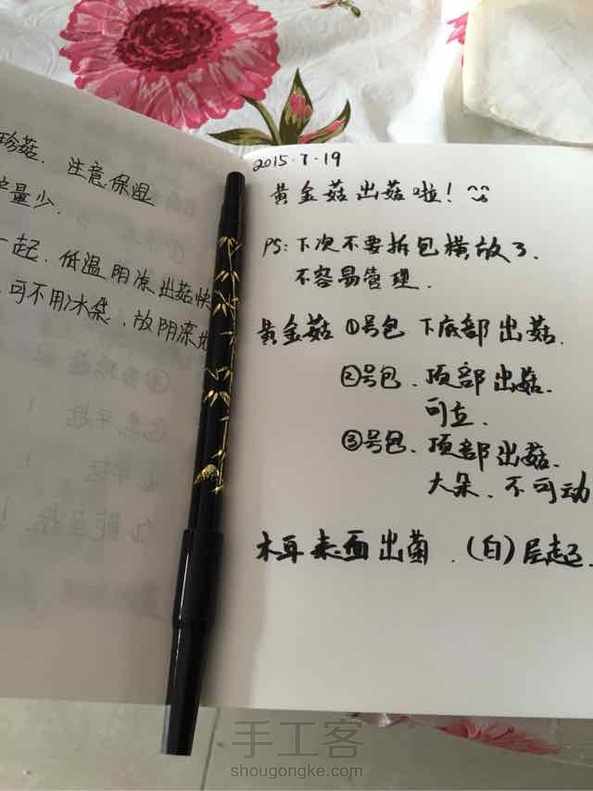 珍菇. 注意保湿
量少.
一起. 低温阴凉出菇快
可不用冰柜. 放阴凉地
2015.7.19
黄金菇出菇啦!
PS: 下次不要拆包横放了.
不容易管理.
黄金菇 ①号包 下底部出菇.
②号包. 顶部出菇.
可立.
③号包. 顶部出菇.
大朵. 不可动
木耳表面出菌. (白)层起.
手工客
shougongke.com